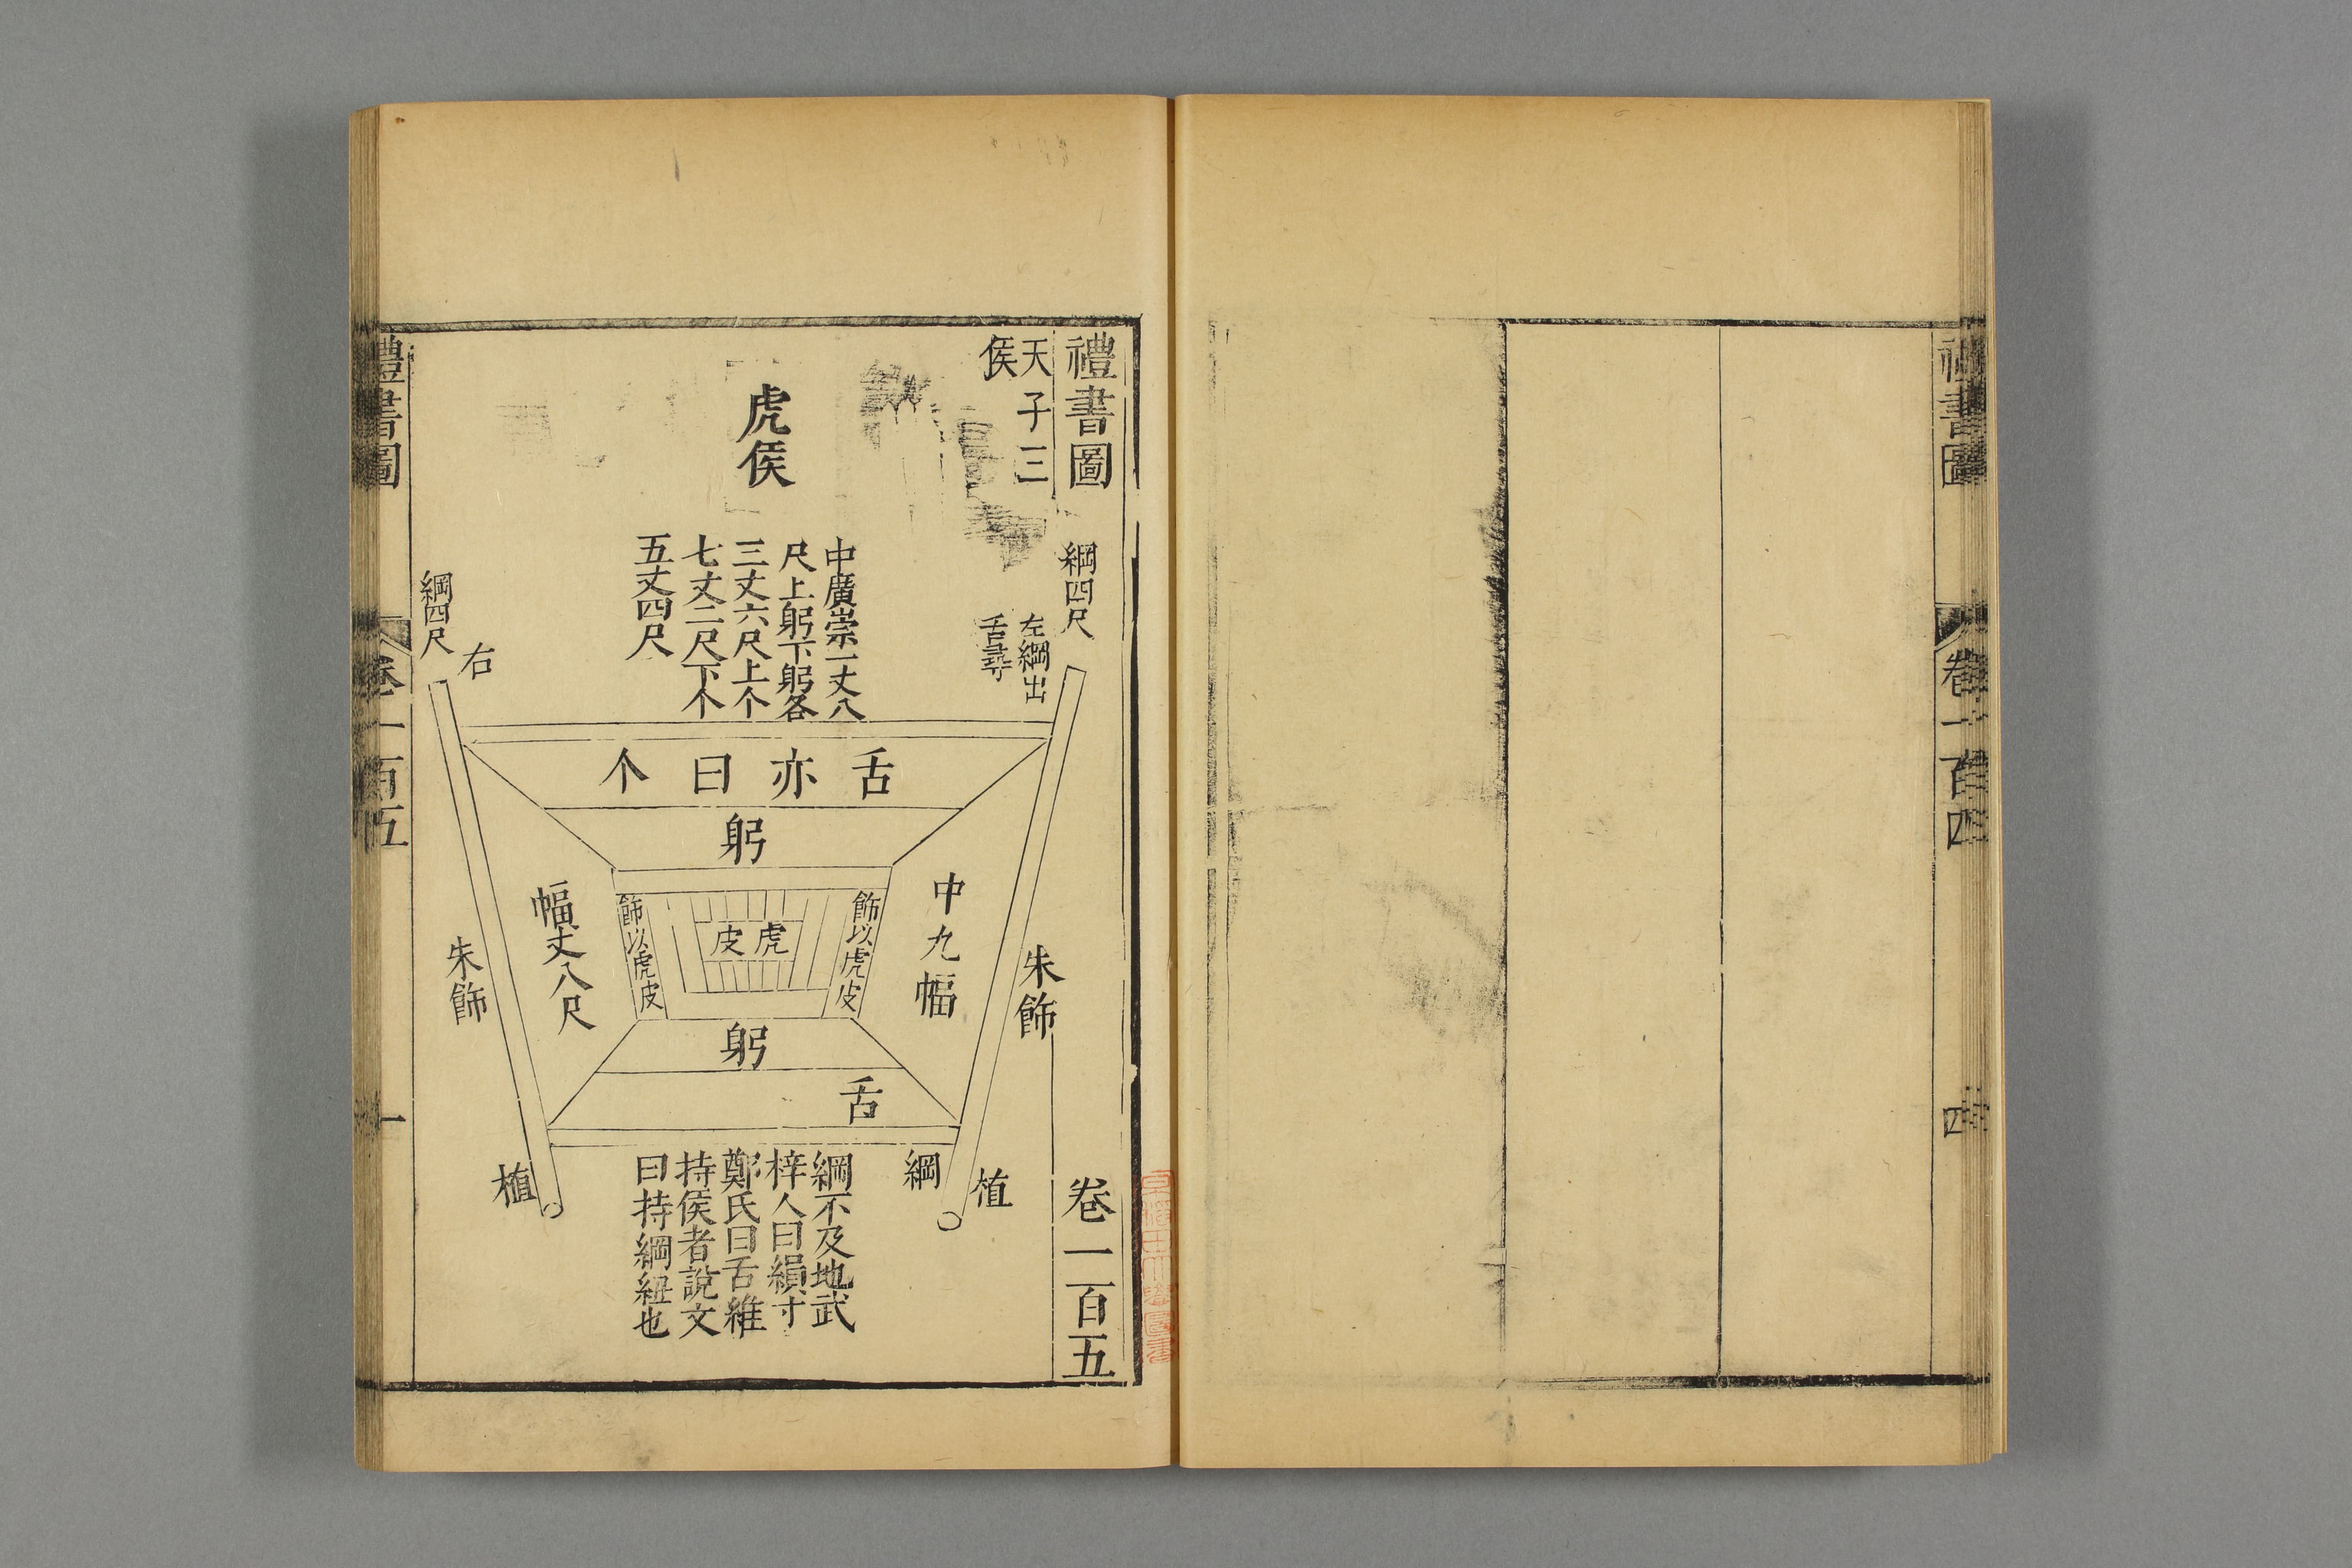 禮書圖
卷一百四
四
禮書圖
卷一百五
天子三
侯
虎侯
綱四尺
左綱出
舌尋
中廣崇一丈八
尺上躬下躬各
三丈六尺上个
七丈二尺下个
五丈四尺
右
綱四尺
舌亦曰个
躬
中九幅
飾以虎皮
虎皮
飾以虎皮
幅丈八尺
朱飾
朱飾
躬
舌
植
綱
植
綱不及地武
梓人曰縜寸
鄭氏曰舌維
持侯者說文
曰持綱紐也
禮書圖
卷一百五
一